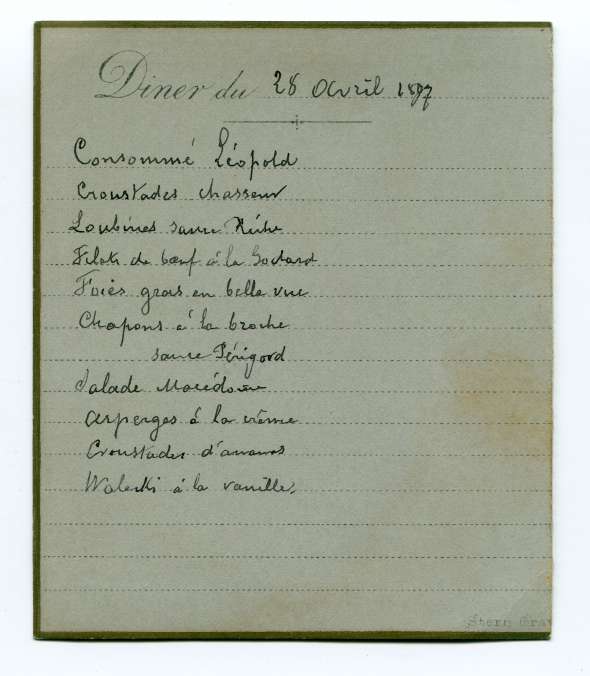 Diner du 28 Avril 1897
Consommé Léopold
Croustades chasseur
Loubines sauce
Filets de bœuf à la Godard
Foies gras en belle vue
Chapons à la broche
sauce Périgord
Salade Macédoine
Asperges à la crème
Croustades d'ananas
Waleski à la vanille.
Stern Gra